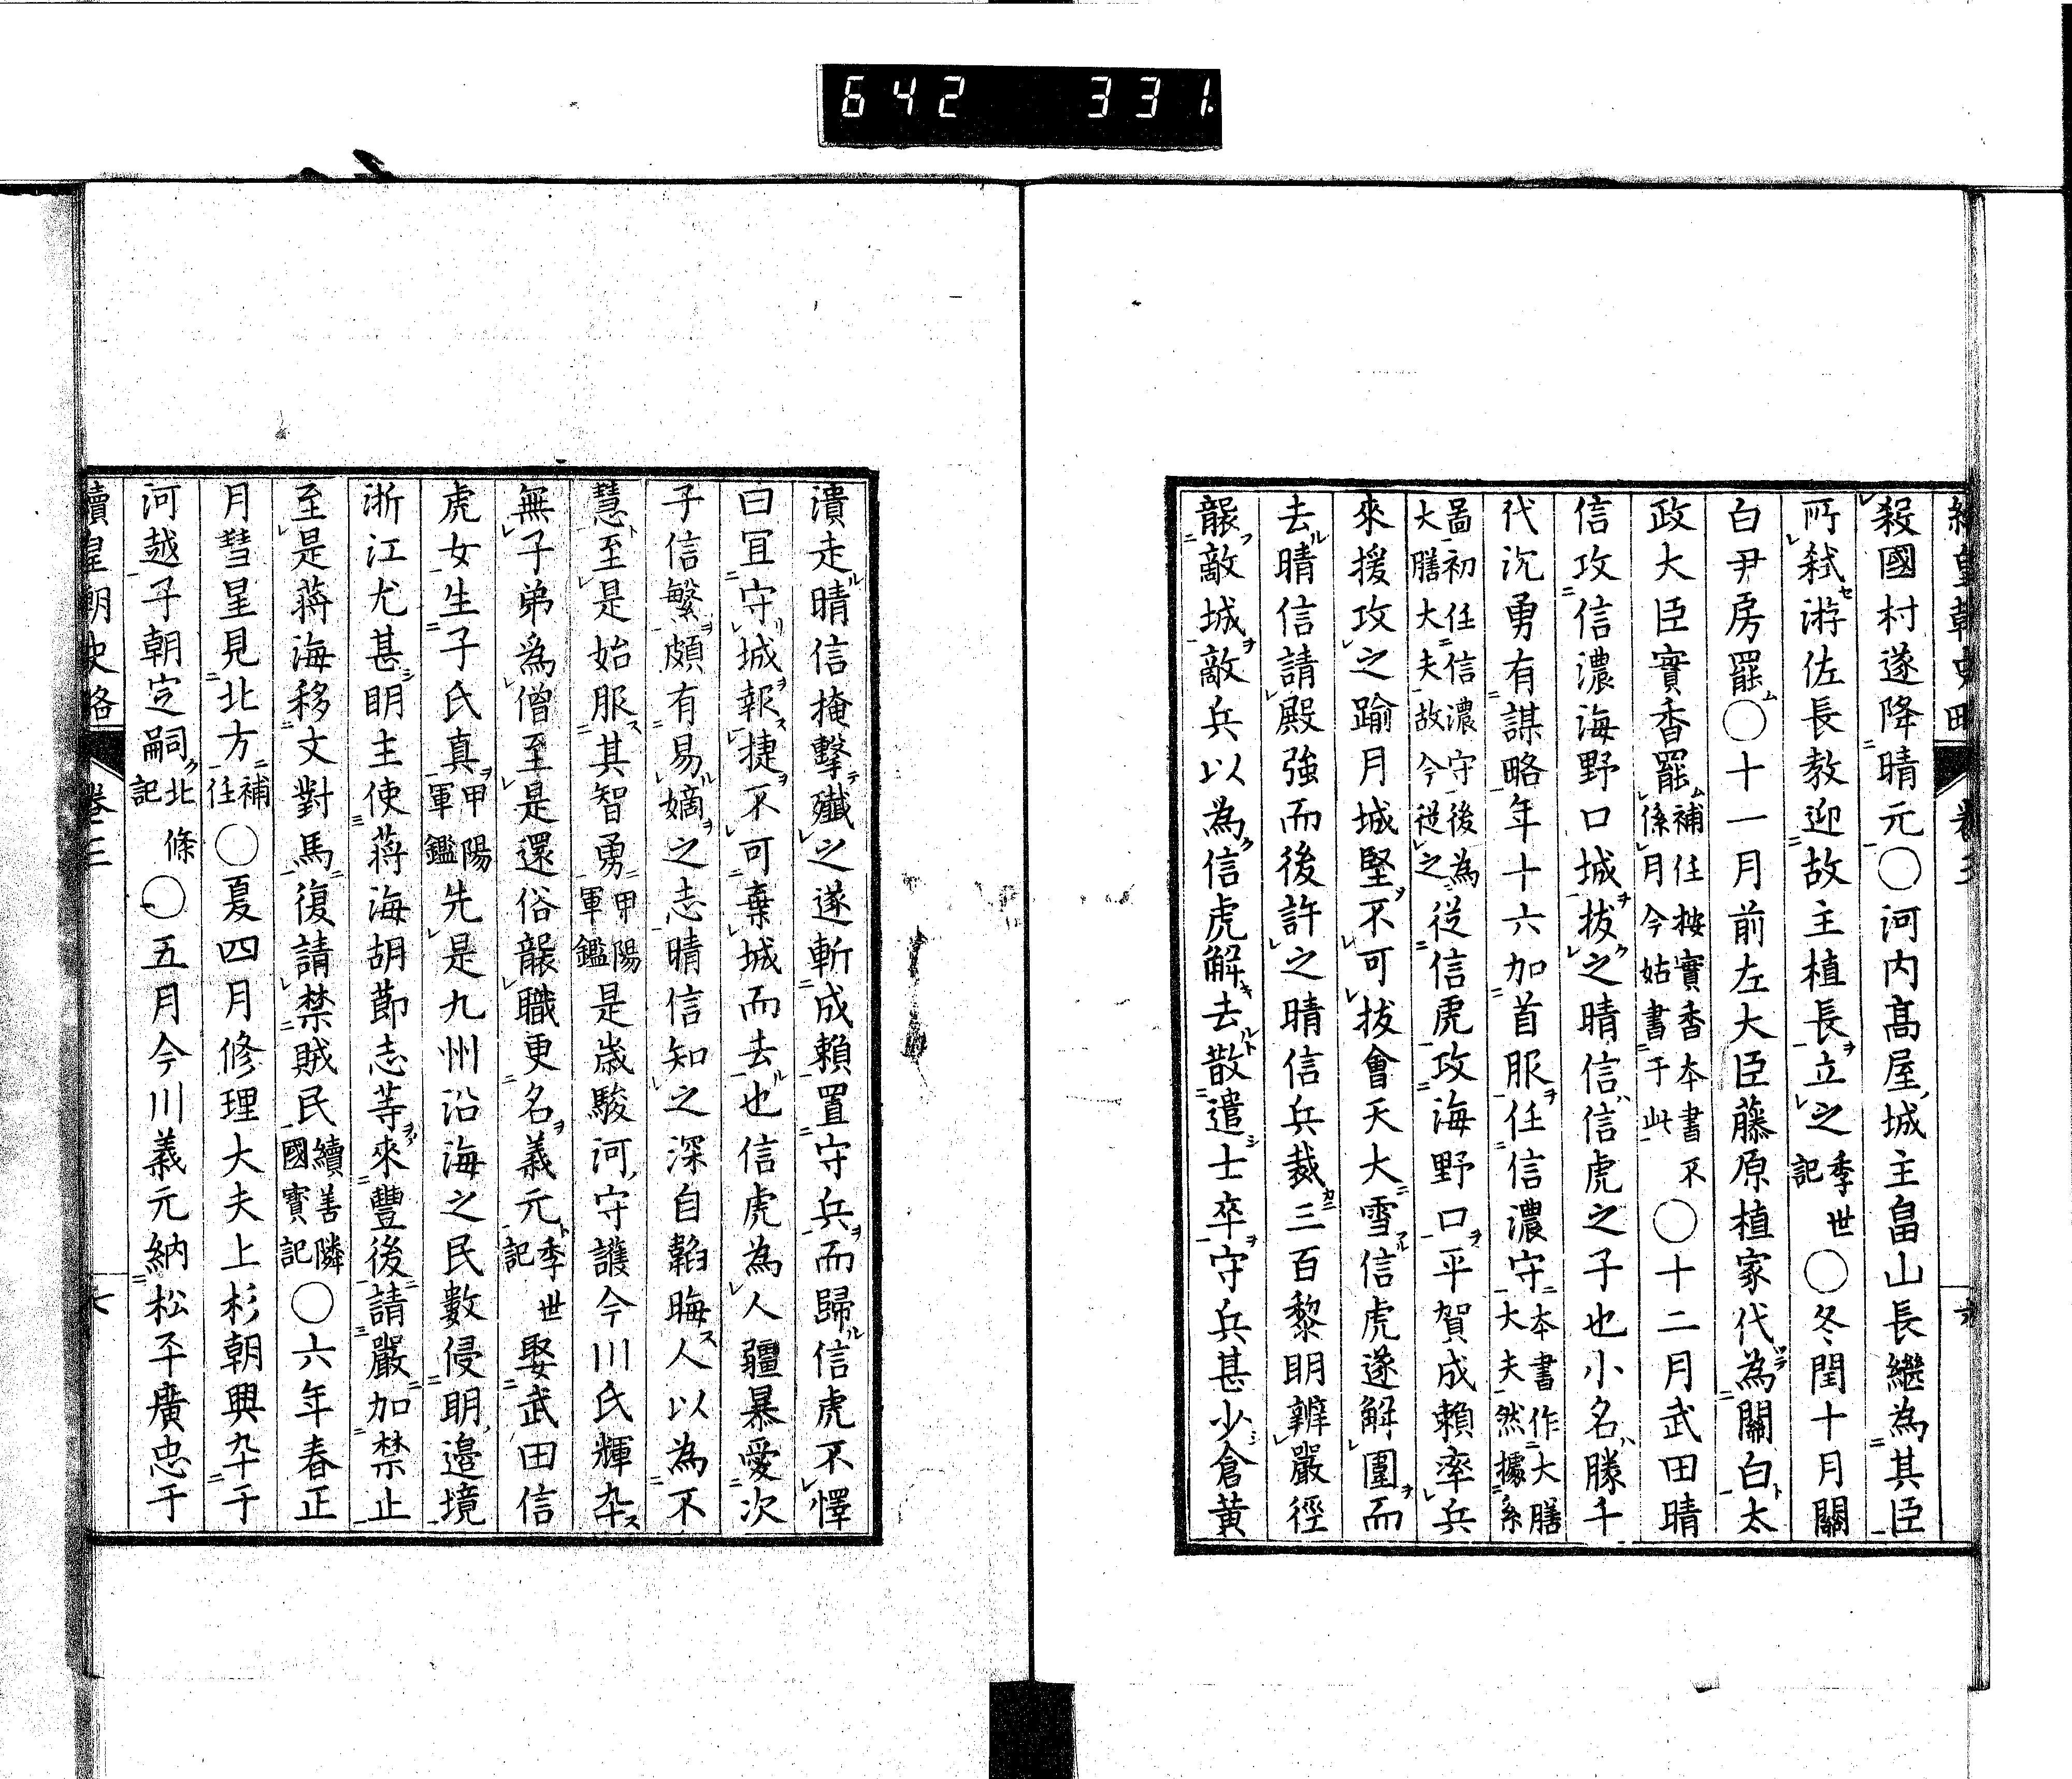 642 331
殺國村遂降晴元○河内髙屋城主畠山長繼為其臣
所弑游佐長教迎故主植長立之季世記○冬閏十月關
白尹房罷○十一月前左大臣藤原植家代為關白太
政大臣實香罷補任按實香本書不係月今姑書于此○十二月武田晴
信攻信濃海野口城拔之晴信信虎之子也小名勝千
代沉勇有謀略年十六加首服任信濃守本書作大膳大夫然據系
圖初任信濃守後為大膳大夫故今從之從信虎攻海野口平賀成賴率兵
來援攻之踰月城堅不可拔會天大雪信虎遂解圍而
去晴信請殿強而後許之晴信兵裁三百黎明辨嚴徑
襲敵城敵兵以為信虎解去散遣士卒守兵甚少倉黄
潰走晴信掩擊殲之遂斬成賴置守兵而歸信虎不懌
曰宜守城報捷不可棄城而去也信虎為人彊暴愛次
子信繁頗有易嫡之志晴信知之深自韜晦人以為不
慧至是始服其智勇甲陽軍鑑是歲駿河守護今川氏輝卒
無子弟為僧至是還俗襲職更名義元季世記娶武田信
虎女生子氏真甲陽軍鑑先是九州沿海之民數侵明邉境
浙江尤甚明主使蒋海胡節志等來豐後請嚴加禁止
至是蒋海移文對馬復請禁賊民續善隣國寳記○六年春正
月彗星見北方補任○夏四月修理大夫上杉朝興卒于
河越子朝定嗣北條記○五月今川義元納松平廣忠于
續皇朝史略 卷三 七